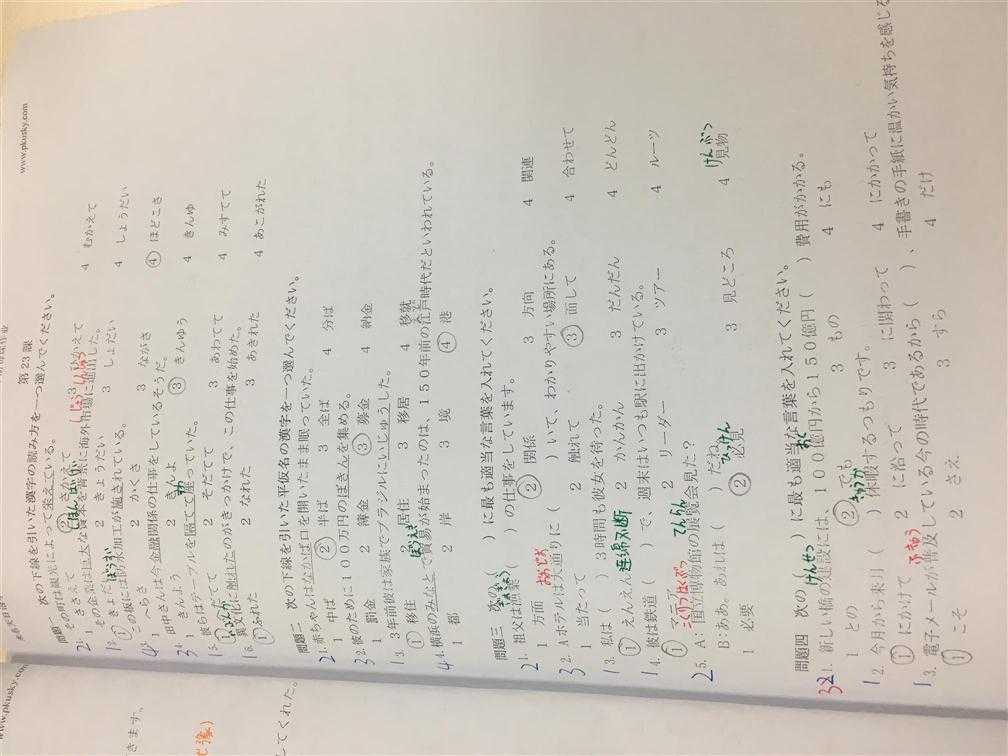 www.pkusky.com
第23課
問題一 次の下線を引いた漢字の読み方を一つ選んでください。
2 1. その町は観光によって栄えている。
1 ささえて ② さかえて 3 ひかえて 4 むかえて
しほん ぼうだい しじょう しんしゅつ
1 2. その企業は巨大な資本を背景に海外市場に進出した。
① きょだい 2 きょうだい 3 しょだい 4 しょうだい
ぼうすい
4 3. この板には防水加工が施されている。
1 さらさら 2 かくさ 3 ながさ ④ ほどこさ
3 4. 田中さんは今金融関係の仕事をしているそうだ。
1 きんよう 2 きんよ ③ きんゆう 4 きんゆ
1 5. 彼らはテーブルを隔てて座っていた。
① へだてて 2 そだてて 3 あわてて 4 みすてて
いぶんか
1 6. 異文化に触れたのがきっかけで、この仕事を始めた。
① ふれた 2 なれた 3 あきれた 4 あこがれた
問題二 次の下線を引いた平仮名の漢字を一つ選んでください。
2 1. 赤ちゃんはなかば口を開いたまま眠っていた。
1 中ば ② 半ば 3 全ば 4 分ば
3 2. 彼のために100万円のぼきんを集める。
1 罰金 2 簿金 ③ 募金 4 納金
1 3. 3年前彼は家族でブラジルにいじゅうした。
① 移住 2 居住 3 移居 4 移就
ぼうえき えど
4 4. 横浜のみなとで貿易が始まったのは、150年前の江戸時代だといわれている。
1 都 2 岸 3 境 ④ 港
問題三 次の( )に最も適当な言葉を入れてください。
ぎょぎょう
2 1. 祖父は漁業( )の仕事をしています。
1 方面 ② 関係 3 方向 4 関連
おおどおり
3 2. Aホテルは大通りに( )いて、わかりやすい場所にある。
1 当たって 2 触れて ③ 面して 4 合わせて
1 3. 私は( )3時間も彼女を待った。
① えんえん 2 かんかん 3 だんだん 4 どんどん
連綿不断
1 4. 彼は鉄道( )で、週末はいつも駅に出かけている。
① マニア 2 リーダー 3 ツアー 4 ルーツ
こくりつはくぶつ てんらん
2 5. A:国立博物館の展覧会見た?
B:ああ。あれは( )だね。
1 必要 ② 必見 3 見どころ 4 見物
ひっけん けんぶつ
問題四 次の( )に最も適当な言葉を入れてください。
けんせつ おく
3 2 1. 新しい橋の建設には、100億円から150億円( )費用がかかる。
1 との ② でも 3 もの 4 にも
きゅうか
1 2. 今月から来月( )休暇するつもりです。
① にかけて 2 に沿って 3 に関わって 4 にかかって
ふきゅう
1 3. 電子メールが普及している今の時代であるから( )、手書きの手紙に温かい気持ちを感じる
① こそ 2 さえ 3 すら 4 だけ
www.pkusky.com
きます。
してくれた。